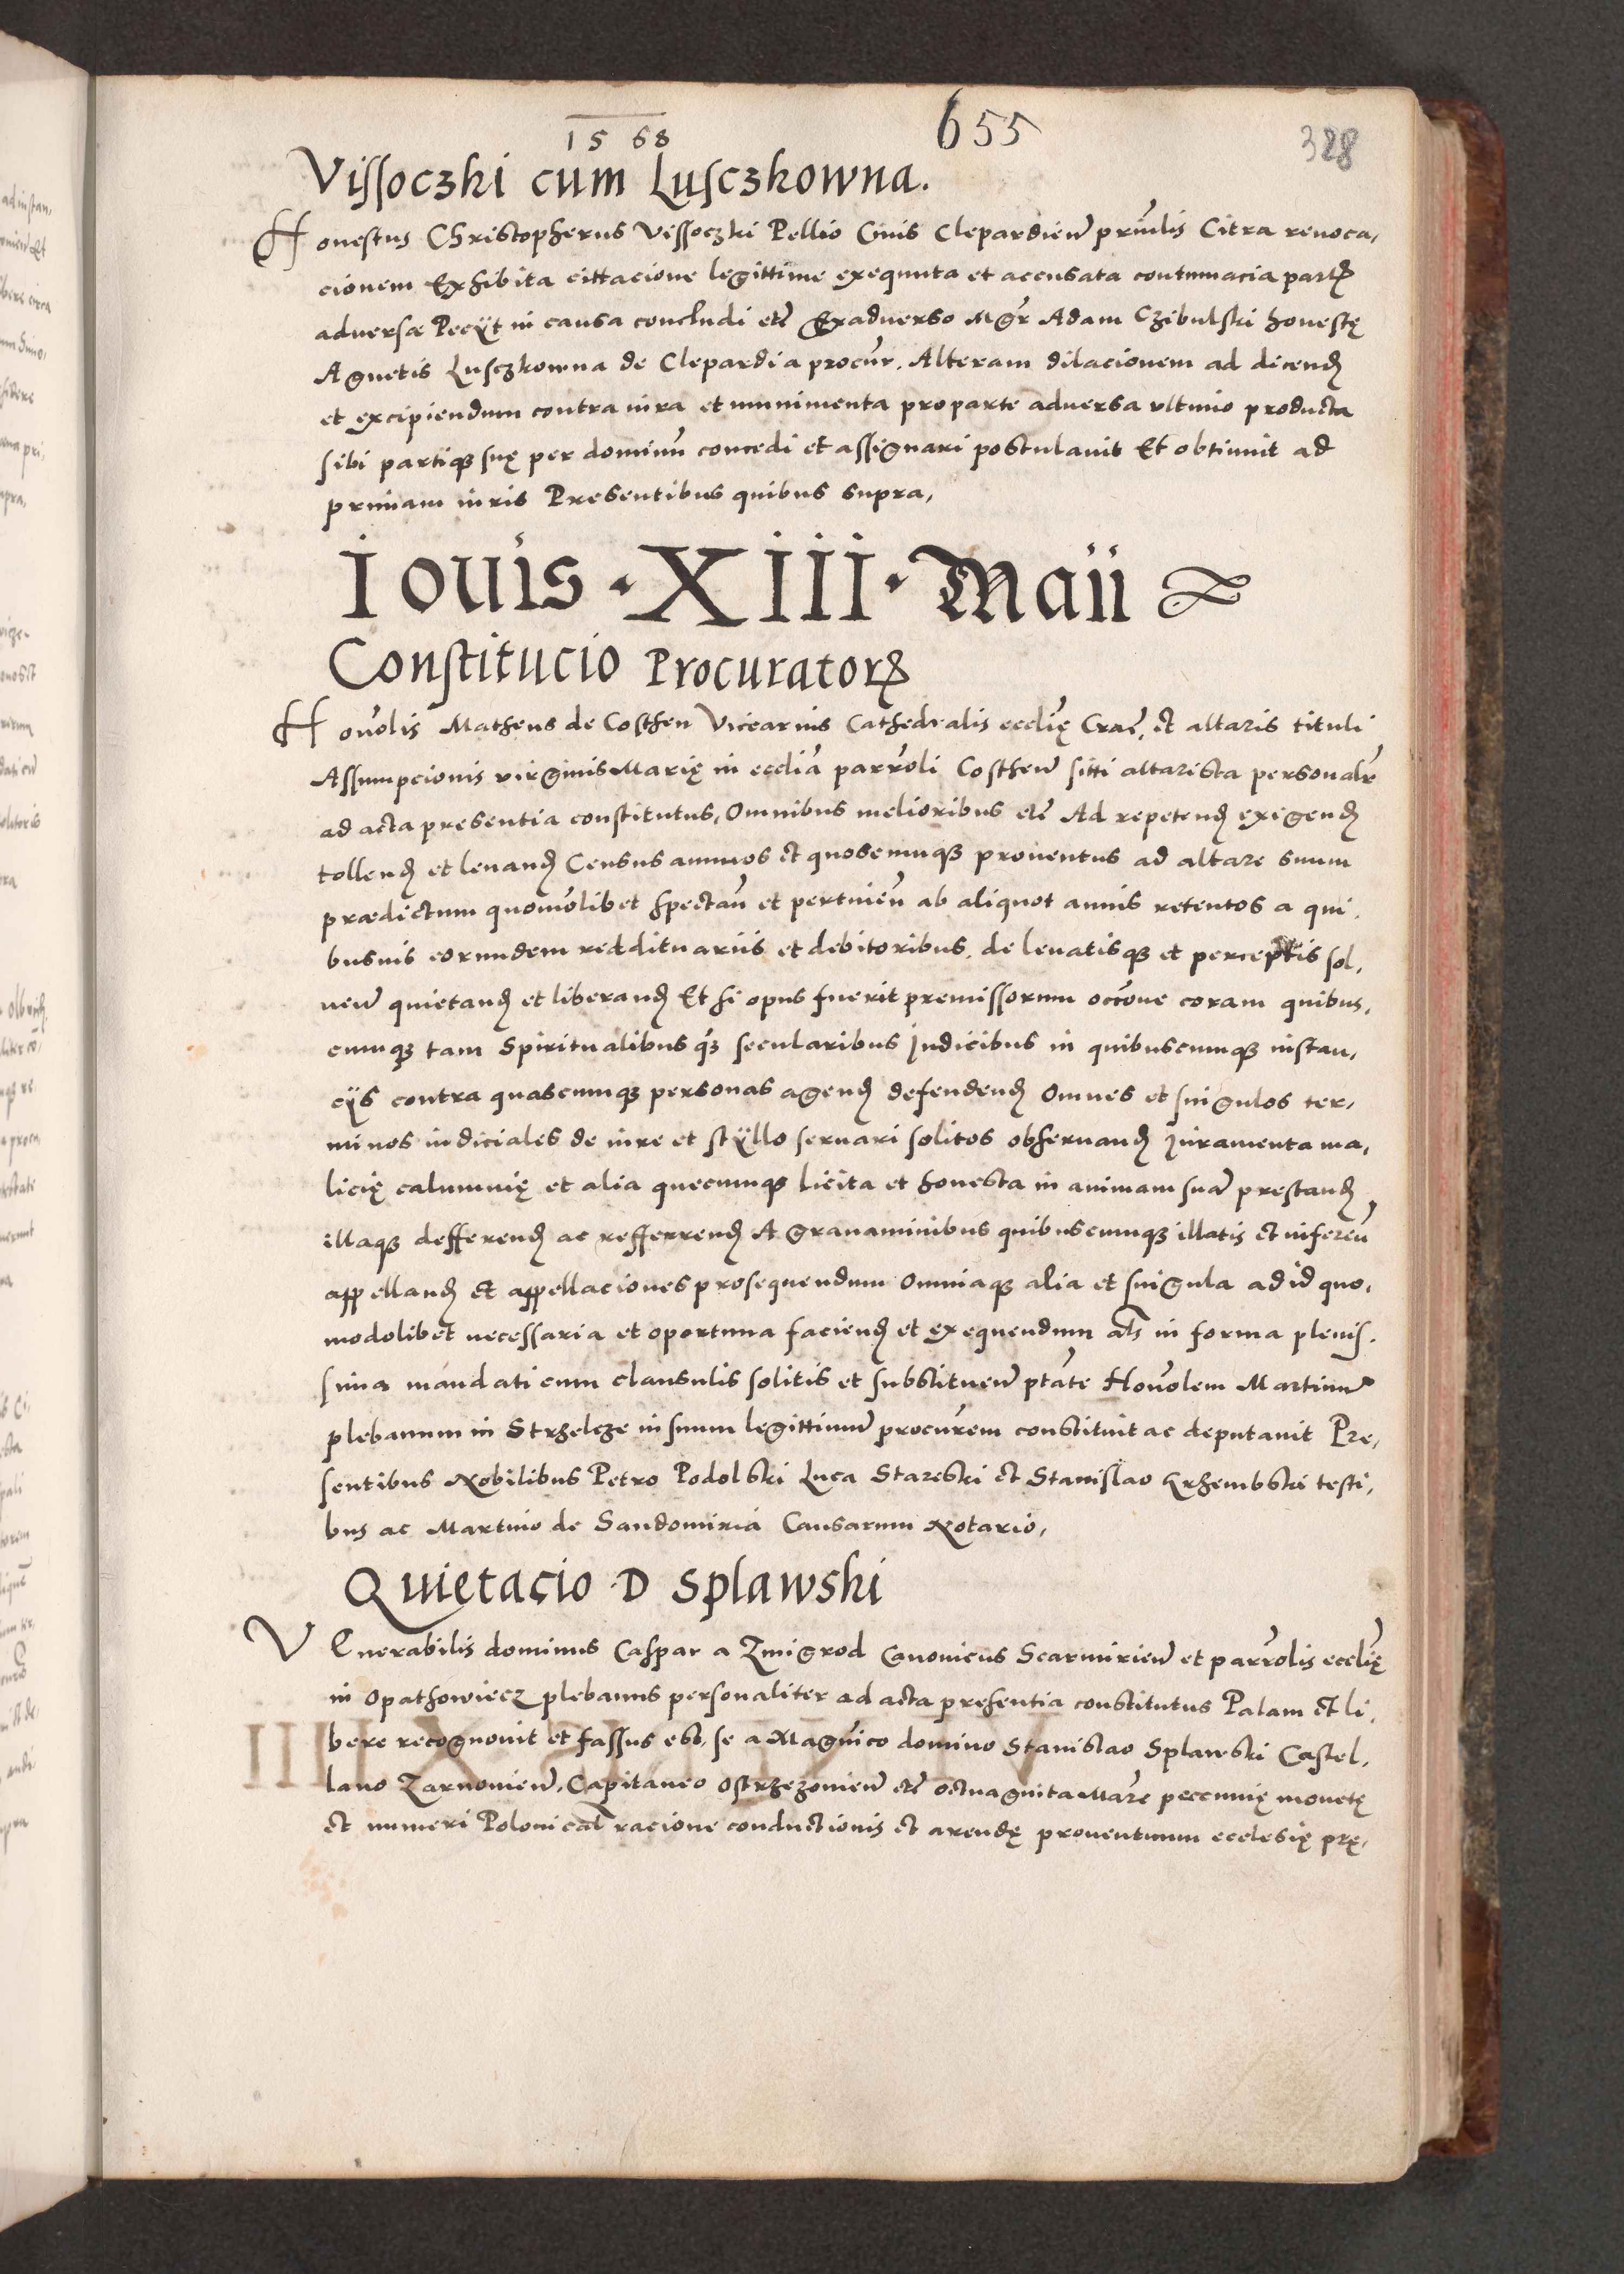 1568
655
328
Vissoczki cum Lusczkowna.
Honestus Christopherus Vissoczki Pellio Civis Clepardien̄ prin̄lis Citra revoca,
cionem Exhibita cittacione legittime exequuta et accusata contumacia partꝭ
adversæ Pecÿt in causa concludi etc̄ Exadverso Mgr̄ Adam Czibulski honestę
Agnetis Lusczkowna de Clepardia procur̄. Alteram dilacionem ad dicendꝭ
et excipiendum contra iura et munimenta pro parte adversa ultimo producta
sibi partiqꝫ suę per dominum̄ concedi et assignari postulavit Et obtinuit ad
primam iuris Presentibus quibus supra,
Iouis · XIII · Maii
Constitucio Procuratorꝭ
Honōlis Matheus de Costhen Viccarius Cathedralis ecclię̄ Crac̄, et altaris tituli
Assumpcionis virginis Marię in ecclīa parrōli Costhen̄ sitti altarista personalr̄
ad acta presentia constitutus, Omnibus melioribus etc̄ Ad repetendꝭ exigendꝭ
tollendꝭ et levandꝭ Census annuos et quoscumqꝫ proventus ad altare suum
prædictum quomōlibet spectan̄ et pertinen̄ ab aliquot annis retentos a qui,
busvis eorundem reddituariis et debitoribus, de levatisqꝫ et perceptis sol,
ven̄ quietandꝭ et liberandꝭ Et si opus fuerit premissorum occ̄one coram quibus,
cumqꝫ tam Spiritualibus qꝫ̄ secularibus Judicibus in quibuscumqꝫ instan,
cÿs contra quascumqꝫ personas agendꝭ defendendꝭ Omnes et singulos ter,
minos iudiciales de iure et stÿllo servari solitos observandꝭ Juramenta ma,
licię calumnię et alia quecumqꝫ licita et honesta in animam suā prestandꝭ
illaqꝫ defferendꝭ ac refferrendꝭ A gravaminibus quibuscumqꝫ illatis et inferen̄
appellandꝭ Et appellaciones prosequendum Omniaqꝫ alia et singula ad id quo,
modolibet necessaria et oportuna faciendꝭ et exequendum als̄ in forma plenis,
sima mandati cum clausulis solitis et substituen̄ ptāte Honōlem Martinū
plebanum in Strzelcze in suum legittimū procurēm constituit ac deputavit Pre,
sentibus Nobilibus Petro Podolski Luca Stareski et Stanislao Krzembski testi,
bus ac Martino de Sandomiria Causarum Notario,
Quietacio D Splawski
VEnerabilis dominus Caspar a Zmigrod Canonicus Scarmirien̄ et parrōlis ecclię̄
in Opathowiecz plebanus personaliter ad acta presentia constitutus Palam et li,
bere recognovit et fassus est, se a Magnīco domino Stanislao Splawski Castel,
lano Zarnovien̄, Capitaneo Ostrzezonien̄ etc̄ octuaginta Marc̄ peccunię monetę
et numeri Polonical̄ racione conductionis et arendę proventuum ecclesię prę,